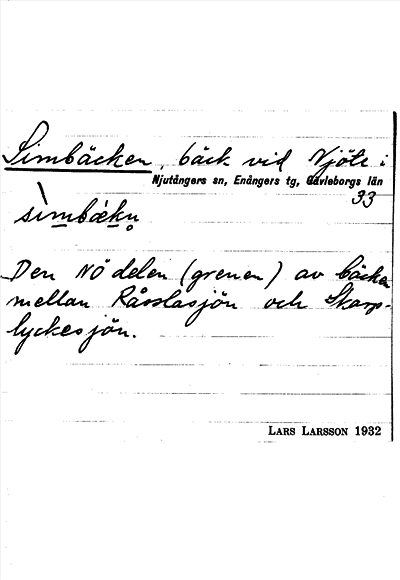 Simbäcken, bäck vid Njöte i
Njutångers sn, Enångers tg, Gävleborgs län
33
sìmbækn̥
Den NÖ delen (grenen) av bäcken
mellan Råsslasjön och Skarp-
lyckesjön.
LARS LARSSON 1932